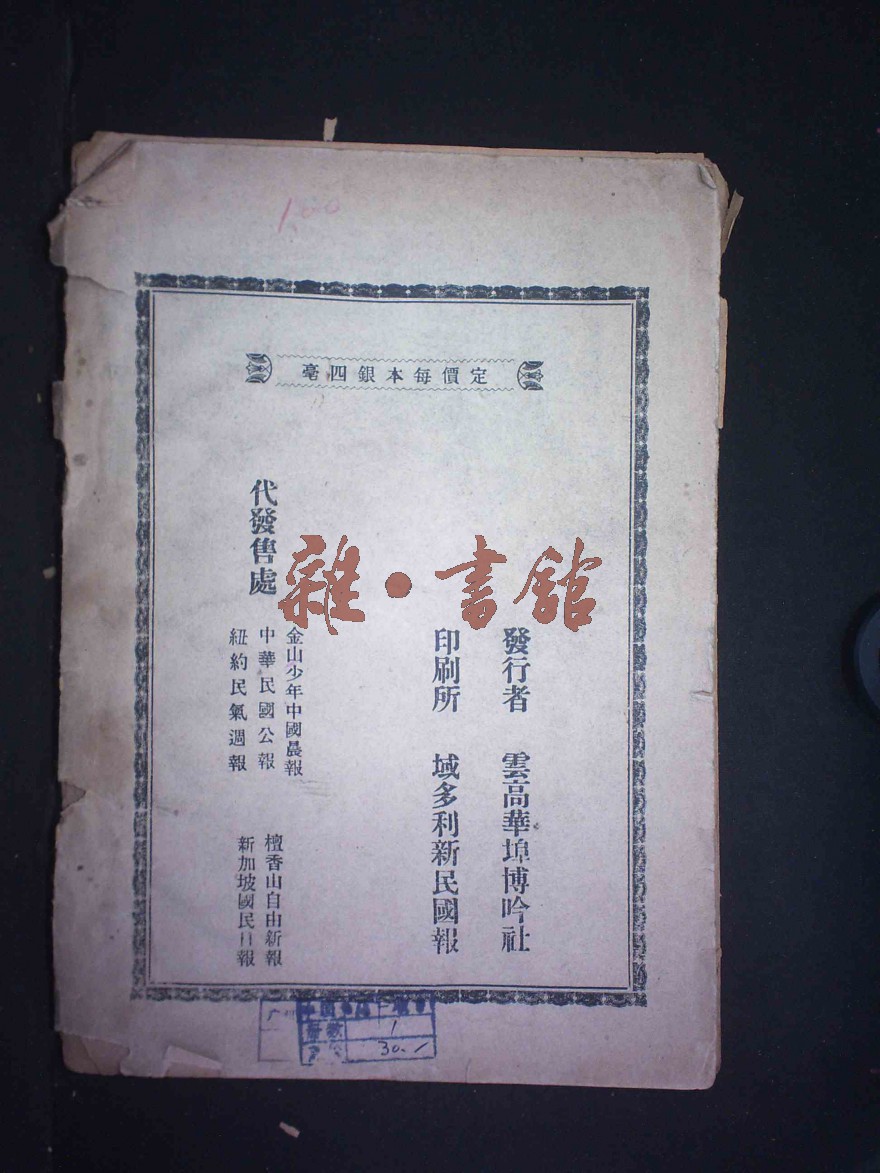 1.00
定價每本銀四毫
發行者 雲高華埠博吟社
印刷所 域多利新民國報
代發售處
金山少年中國晨報
中華民國公報
紐約民氣週報
檀香山自由新報
新加坡國民日報
雜·書館
1
30.-